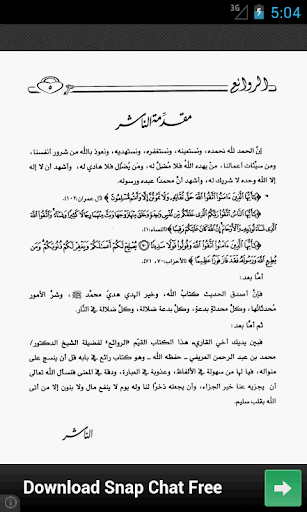 3G 5:04
الروائع ٥
مقدمة الناشر
إنَّ الحمد لله نحمده، ونستعينه، ونستغفره، ونستهديه، ونعوذ بالله من شرور أنفسنا،
ومن سيئات أعمالنا، منْ يهده اللهُ فلا مُضلَّ له، ومَن يُضلِل فلا هادي له، وأشهد أن لا إله
إلا الله وحده لا شريك له، وأشهد أنَّ محمدًا عبده ورسوله.
﴿يَا أَيُّهَا الَّذِينَ آمَنُوا اتَّقُوا اللَّهَ حَقَّ تُقَاتِهِ وَلَا تَمُوتُنَّ إِلَّا وَأَنْتُمْ مُسْلِمُونَ﴾ (آل عمران:١٠٢).
﴿يَا أَيُّهَا النَّاسُ اتَّقُوا رَبَّكُمُ الَّذِي خَلَقَكُمْ مِنْ نَفْسٍ وَاحِدَةٍ وَخَلَقَ مِنْهَا زَوْجَهَا وَبَثَّ مِنْهُمَا رِجَالًا كَثِيرًا وَنِسَاءً وَاتَّقُوا اللَّهَ
الَّذِي تَسَاءَلُونَ بِهِ وَالْأَرْحَامَ إِنَّ اللَّهَ كَانَ عَلَيْكُمْ رَقِيبًا﴾ (النساء:١).
﴿يَا أَيُّهَا الَّذِينَ آمَنُوا اتَّقُوا اللَّهَ وَقُولُوا قَوْلًا سَدِيدًا ۝ يُصْلِحْ لَكُمْ أَعْمَالَكُمْ وَيَغْفِرْ لَكُمْ ذُنُوبَكُمْ وَمَنْ
يُطِعِ اللَّهَ وَرَسُولَهُ فَقَدْ فَازَ فَوْزًا عَظِيمًا﴾ (الأحزاب:٧٠، ٧١).
أمَّا بعد:
فإنَّ أصدق الحديث كتابُ الله، وخير الهدي هديُ محمَّدٍ ﷺ، وشرَّ الأمور
مُحدثاتُها، وكلَّ محدثةٍ بدعةٌ، وكلَّ بدعة ضلالة، وكلَّ ضلالة في النَّار.
ثم أما بعد:
فبين يديك أخي القارىء هذا الكتاب القيّم «الروائع» لفضيلة الشيخ الدكتور/
محمد بن عبد الرحمن العريفي - حفظه الله - وهو كتاب رائع في بابه قل أن ينسج على
منواله، فيها لها من سهولة في الألفاظ، وعذوبة في العبارة، ودقة في المعنى فنسأل الله تعالى
أن يجزيه عنا خير الجزاء، وأن يجعله ذخرًا لنا وله يوم لا ينفع مال ولا بنون إلا من أتى
الله بقلب سليم.
الناشر
Download Snap Chat Free